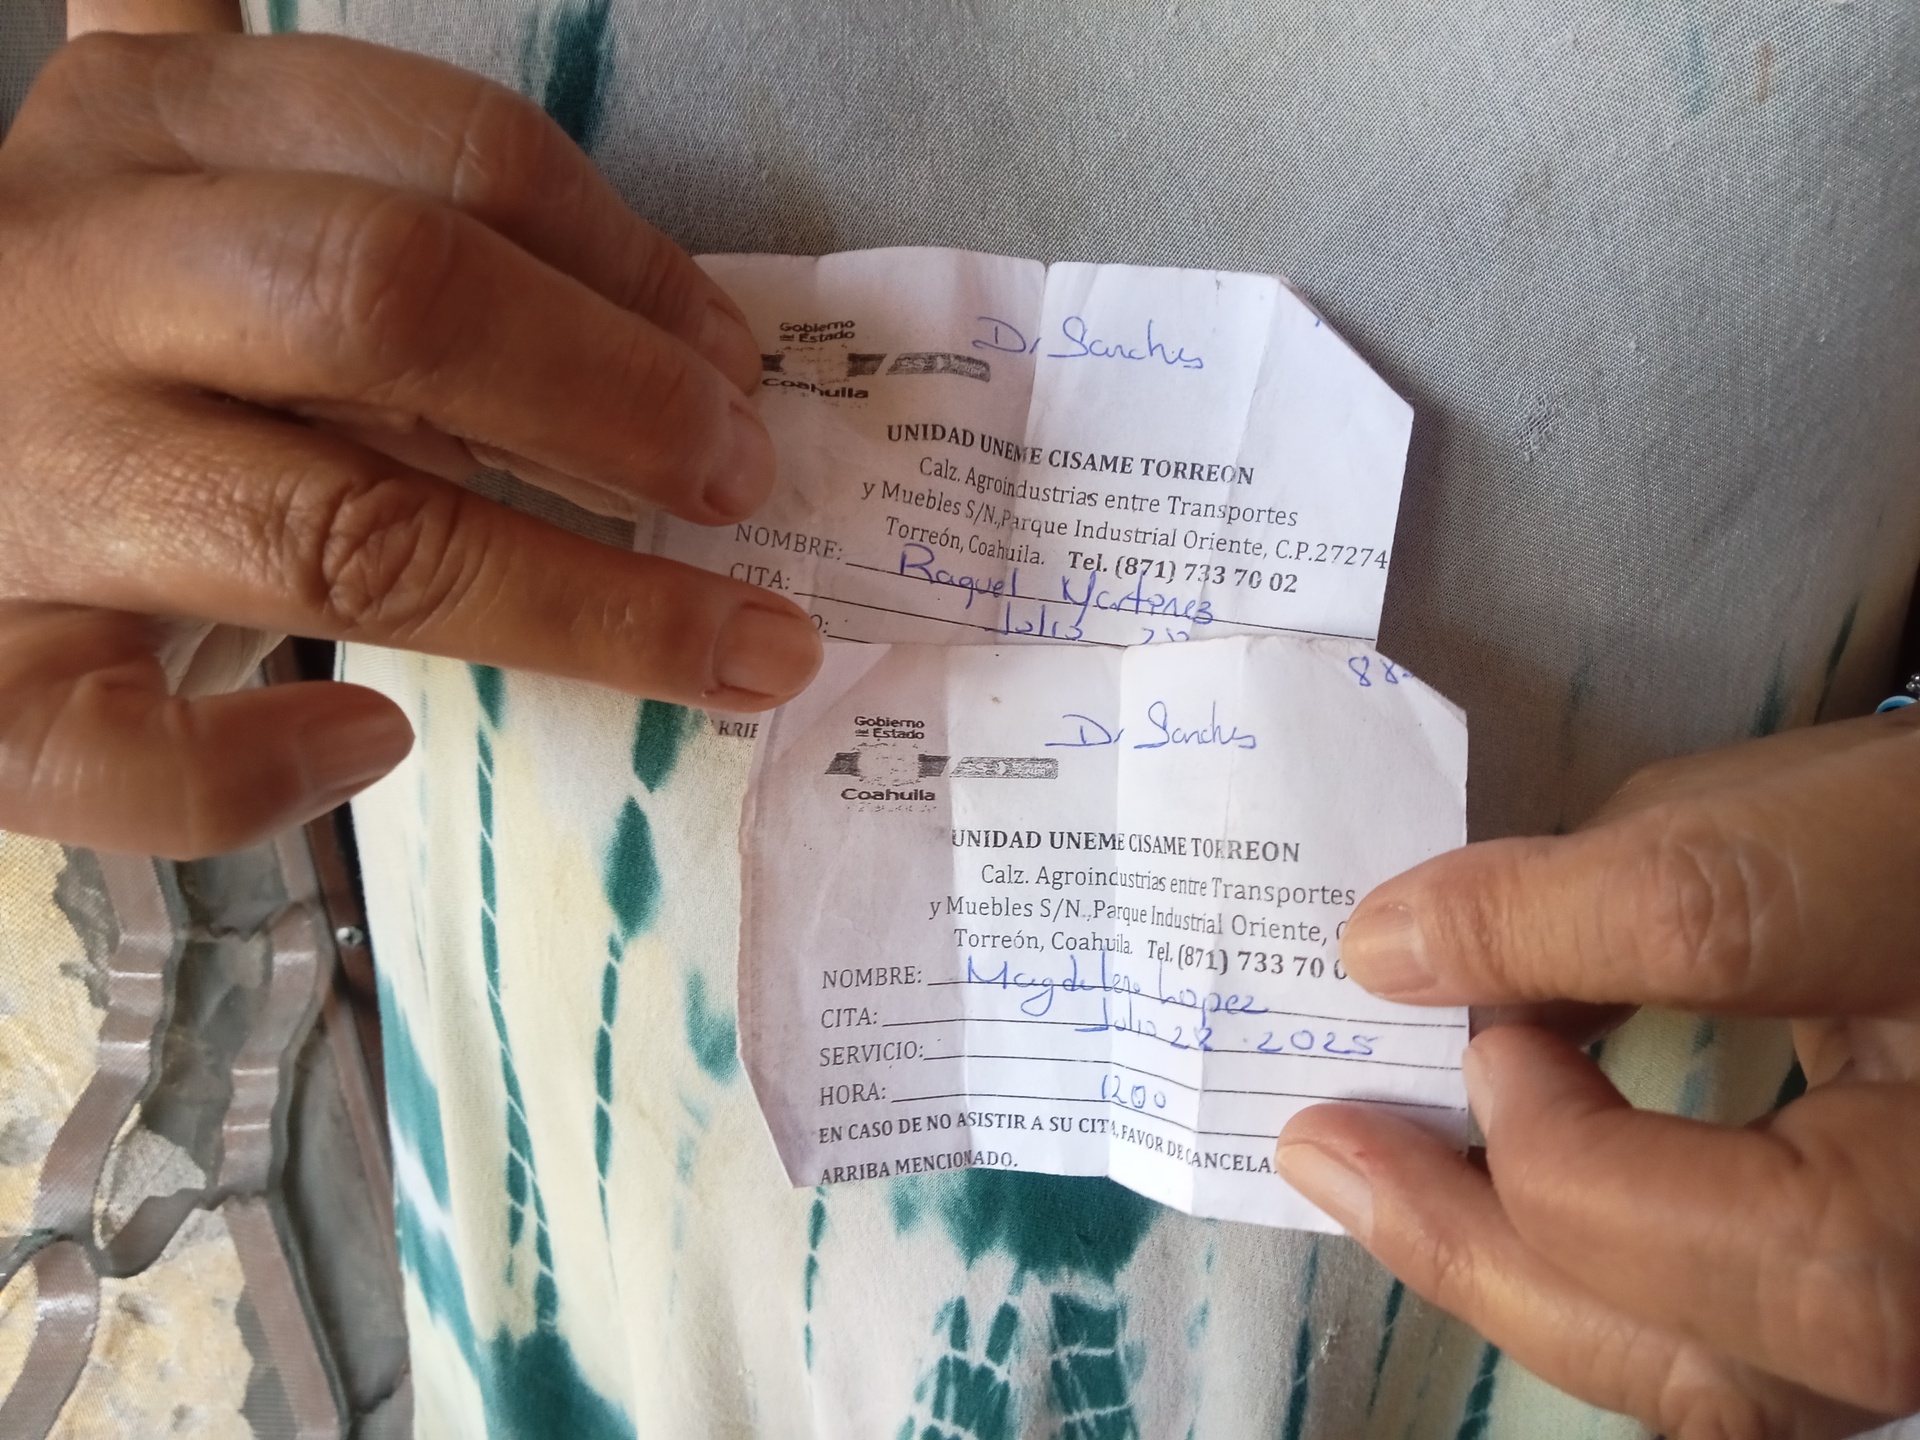 Gobierno
del Estado
Coahuila
Dr Sanches
UNIDAD UNEME CISAME TORREON
Calz. Agroindustrias entre Transportes
y Muebles S/N.,Parque Industrial Oriente, C.P.27274
Torreón, Coahuila. Tel. (871) 733 70 02
NOMBRE: Raquel Martinez
CITA: Julio
O:
88
Gobierno
del Estado
Coahuila
Dr Sanches
UNIDAD UNEME CISAME TORREON
Calz. Agroindustrias entre Transportes
y Muebles S/N.,Parque Industrial Oriente,
Torreón, Coahuila. Tel. (871) 733 70 0
NOMBRE: Magdalena Lopez
CITA: Julio 22 . 2025
SERVICIO:
HORA: 1200
EN CASO DE NO ASISTIR A SU CITA,FAVOR DE CANCELA
ARRIBA MENCIONADO.